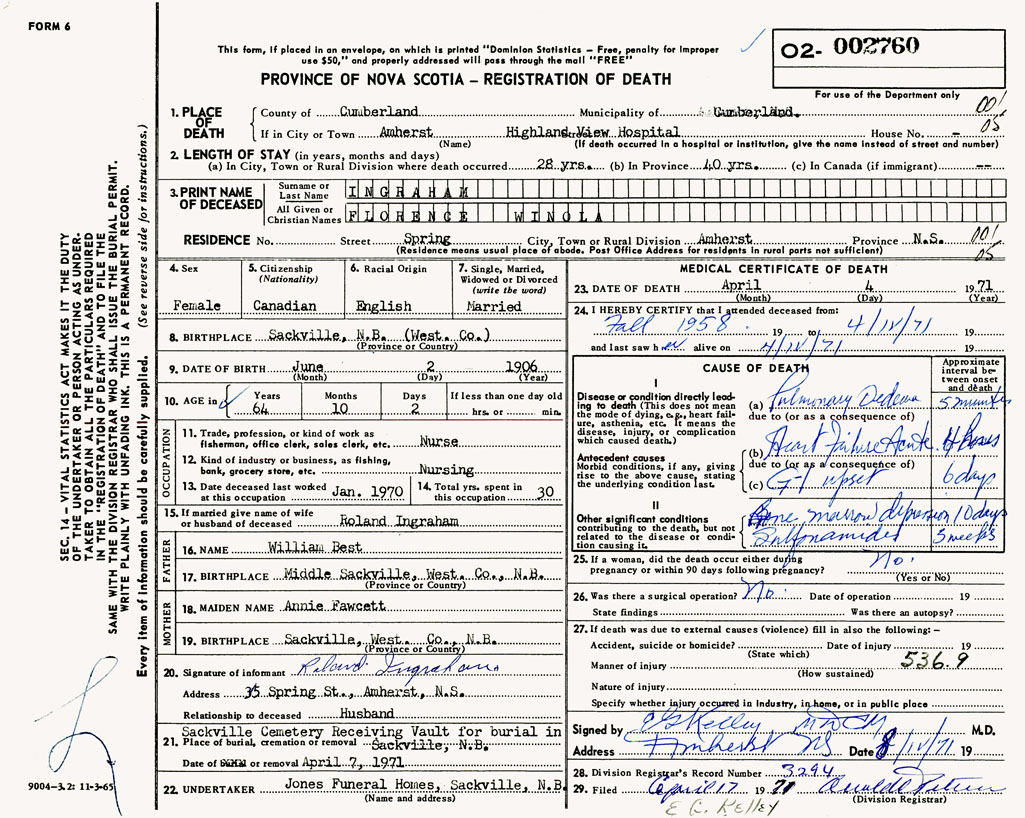 FORM 6
This form, if placed in an envelope, on which is printed "Dominion Statistics – Free, penalty for improper
use $50," and properly addressed will pass through the mail "FREE"
02- 002760
PROVINCE OF NOVA SCOTIA – REGISTRATION OF DEATH
For use of the Department only
001
05
1. PLACE OF DEATH
County of Cumberland Municipality of Cumberland.
If in City or Town Amherst Highland View Hospital House No. –
(Name) (If death occurred in a hospital or institution, give the name instead of street and number)
2. LENGTH OF STAY (in years, months and days)
(a) In City, Town or Rural Division where death occurred 28 yrs. (b) In Province 40 yrs. (c) In Canada (if immigrant) --
3. PRINT NAME OF DECEASED
Surname or Last Name INGRAHAM
All Given or Christian Names FLORENCE WINOLA
RESIDENCE No. Street Spring City, Town or Rural Division Amherst Province N.S.
(Residence means usual place of abode. Post Office Address for residents in rural parts not sufficient)
001
05
4. Sex
Female
5. Citizenship
(Nationality)
Canadian
6. Racial Origin
English
7. Single, Married,
Widowed or Divorced
(write the word)
Married
8. BIRTHPLACE Sackville, N.B. (West. Co.)
(Province or Country)
9. DATE OF BIRTH June 2 1906
(Month) (Day) (Year)
10. AGE in
Years Months Days If less than one day old
64 10 2 hrs. or min.
OCCUPATION
11. Trade, profession, or kind of work as
fisherman, office clerk, sales clerk, etc. Nurse
12. Kind of industry or business, as fishing,
bank, grocery store, etc. Nursing
13. Date deceased last worked
at this occupation Jan. 1970
14. Total yrs. spent in
this occupation 30
15. If married give name of wife
or husband of deceased Roland Ingraham
FATHER
16. NAME William Best
17. BIRTHPLACE Middle Sackville, West. Co., N.B.
(Province or Country)
MOTHER
18. MAIDEN NAME Annie Fawcett
19. BIRTHPLACE Sackville, West. Co., N.B.
(Province or Country)
20. Signature of informant Roland Ingraham
Address 35 Spring St., Amherst, N.S.
Relationship to deceased Husband
Sackville Cemetery Receiving Vault for burial in
21. Place of burial, cremation or removal Sackville, N.B.
Date of or removal April 7, 1971
22. UNDERTAKER Jones Funeral Homes, Sackville, N.B.
(Name and address)
MEDICAL CERTIFICATE OF DEATH
23. DATE OF DEATH April 4 1971
(Month) (Day) (Year)
24. I HEREBY CERTIFY that I attended deceased from:
Fall 1958 19 to 4/IV/71 19
and last saw her alive on 4/IV/71 19
CAUSE OF DEATH
Approximate
interval be-
tween onset
and death
I
Disease or condition directly lead-
ing to death (This does not mean
the mode of dying, e.g., heart fail-
ure, asthenia, etc. It means the
disease, injury, or complication
which caused death.)
(a) Pulmonary Oedema 5 minutes
due to (or as a consequence of)
Antecedent causes
Morbid conditions, if any, giving
rise to the above cause, stating
the underlying condition last.
(b) Heart Failure Acute 4 hours
due to (or as a consequence of)
(c) G-I upset 6 days
II
Other significant conditions
contributing to the death, but not
related to the disease or condi-
tion causing it.
Bone marrow depression 10 days
Sulfonamides 3 weeks
25. If a woman, did the death occur either during
pregnancy or within 90 days following pregnancy? No.
(Yes or No)
26. Was there a surgical operation? No. Date of operation 19
State findings Was there an autopsy?
27. If death was due to external causes (violence) fill in also the following: –
Accident, suicide or homicide? Date of injury 19
(State which)
536.9
Manner of injury
(How sustained)
Nature of injury
Specify whether injury occurred in industry, in home, or in public place
Signed by E G Kelley M.D.
Address Amherst NS Date 8/IV/71 19
28. Division Registrar's Record Number 3294
29. Filed April 17 1971
(Division Registrar)
E C. KELLEY
SEC. 14 – VITAL STATISTICS ACT MAKES IT THE DUTY
OF THE UNDERTAKER OR PERSON ACTING AS UNDER-
TAKER TO OBTAIN ALL THE PARTICULARS REQUIRED
IN THE "REGISTRATION OF DEATH" AND TO FILE THE
SAME WITH THE DIVISION REGISTRAR WHO SHALL ISSUE THE BURIAL PERMIT.
WRITE PLAINLY WITH UNFADING INK. THIS IS A PERMANENT RECORD.
Every item of information should be carefully supplied. (See reverse side for instructions.)
9004-3.2: 11-3-65